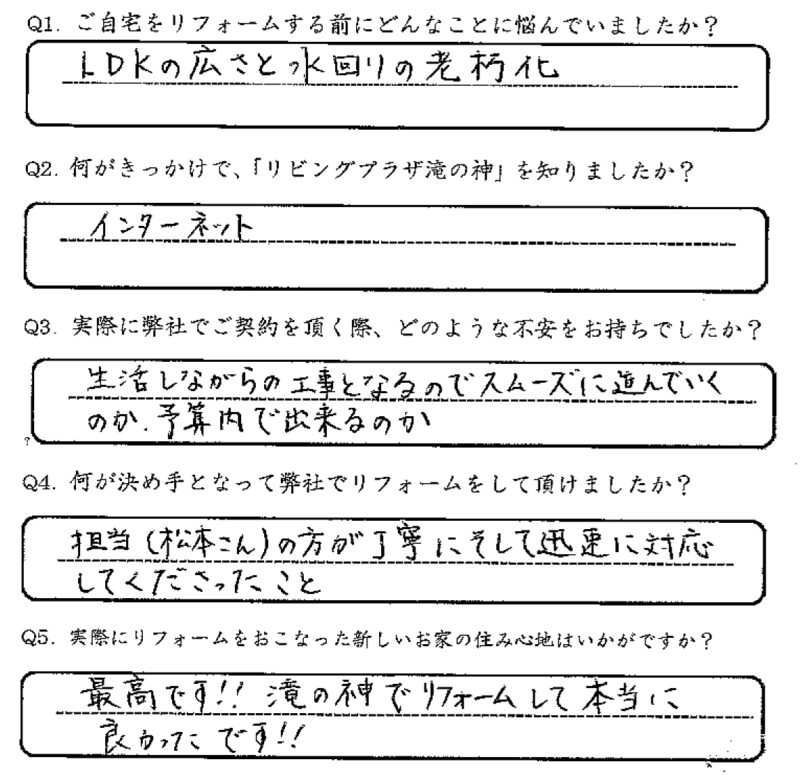 Q1. ご自宅をリフォームする前にどんなことに悩んでいましたか？
LDKの広さと水回りの老朽化
Q2. 何がきっかけで、「リビングプラザ滝の神」を知りましたか？
インターネット
Q3. 実際に弊社でご契約を頂く際、どのような不安をお持ちでしたか？
生活しながらの工事となるのでスムーズに進んでいく
のか、予算内で出来るのか
Q4. 何が決め手となって弊社でリフォームをして頂けましたか？
担当（松本さん）の方が丁寧にそして迅速に対応
してくださったこと
Q5. 実際にリフォームをおこなった新しいお家の住み心地はいかがですか？
最高です!! 滝の神でリフォームして本当に
良かったです!!